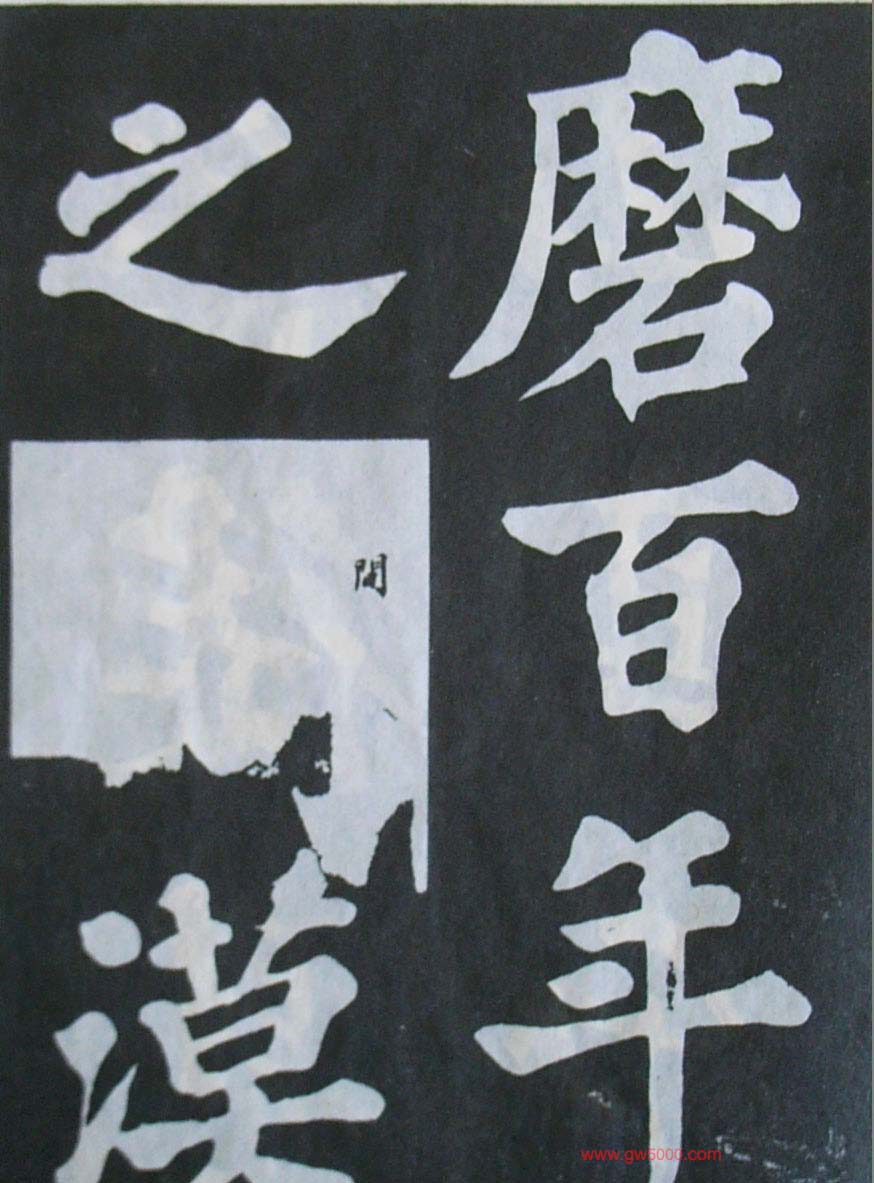 磨百年
之間漠
www.gw5000.com